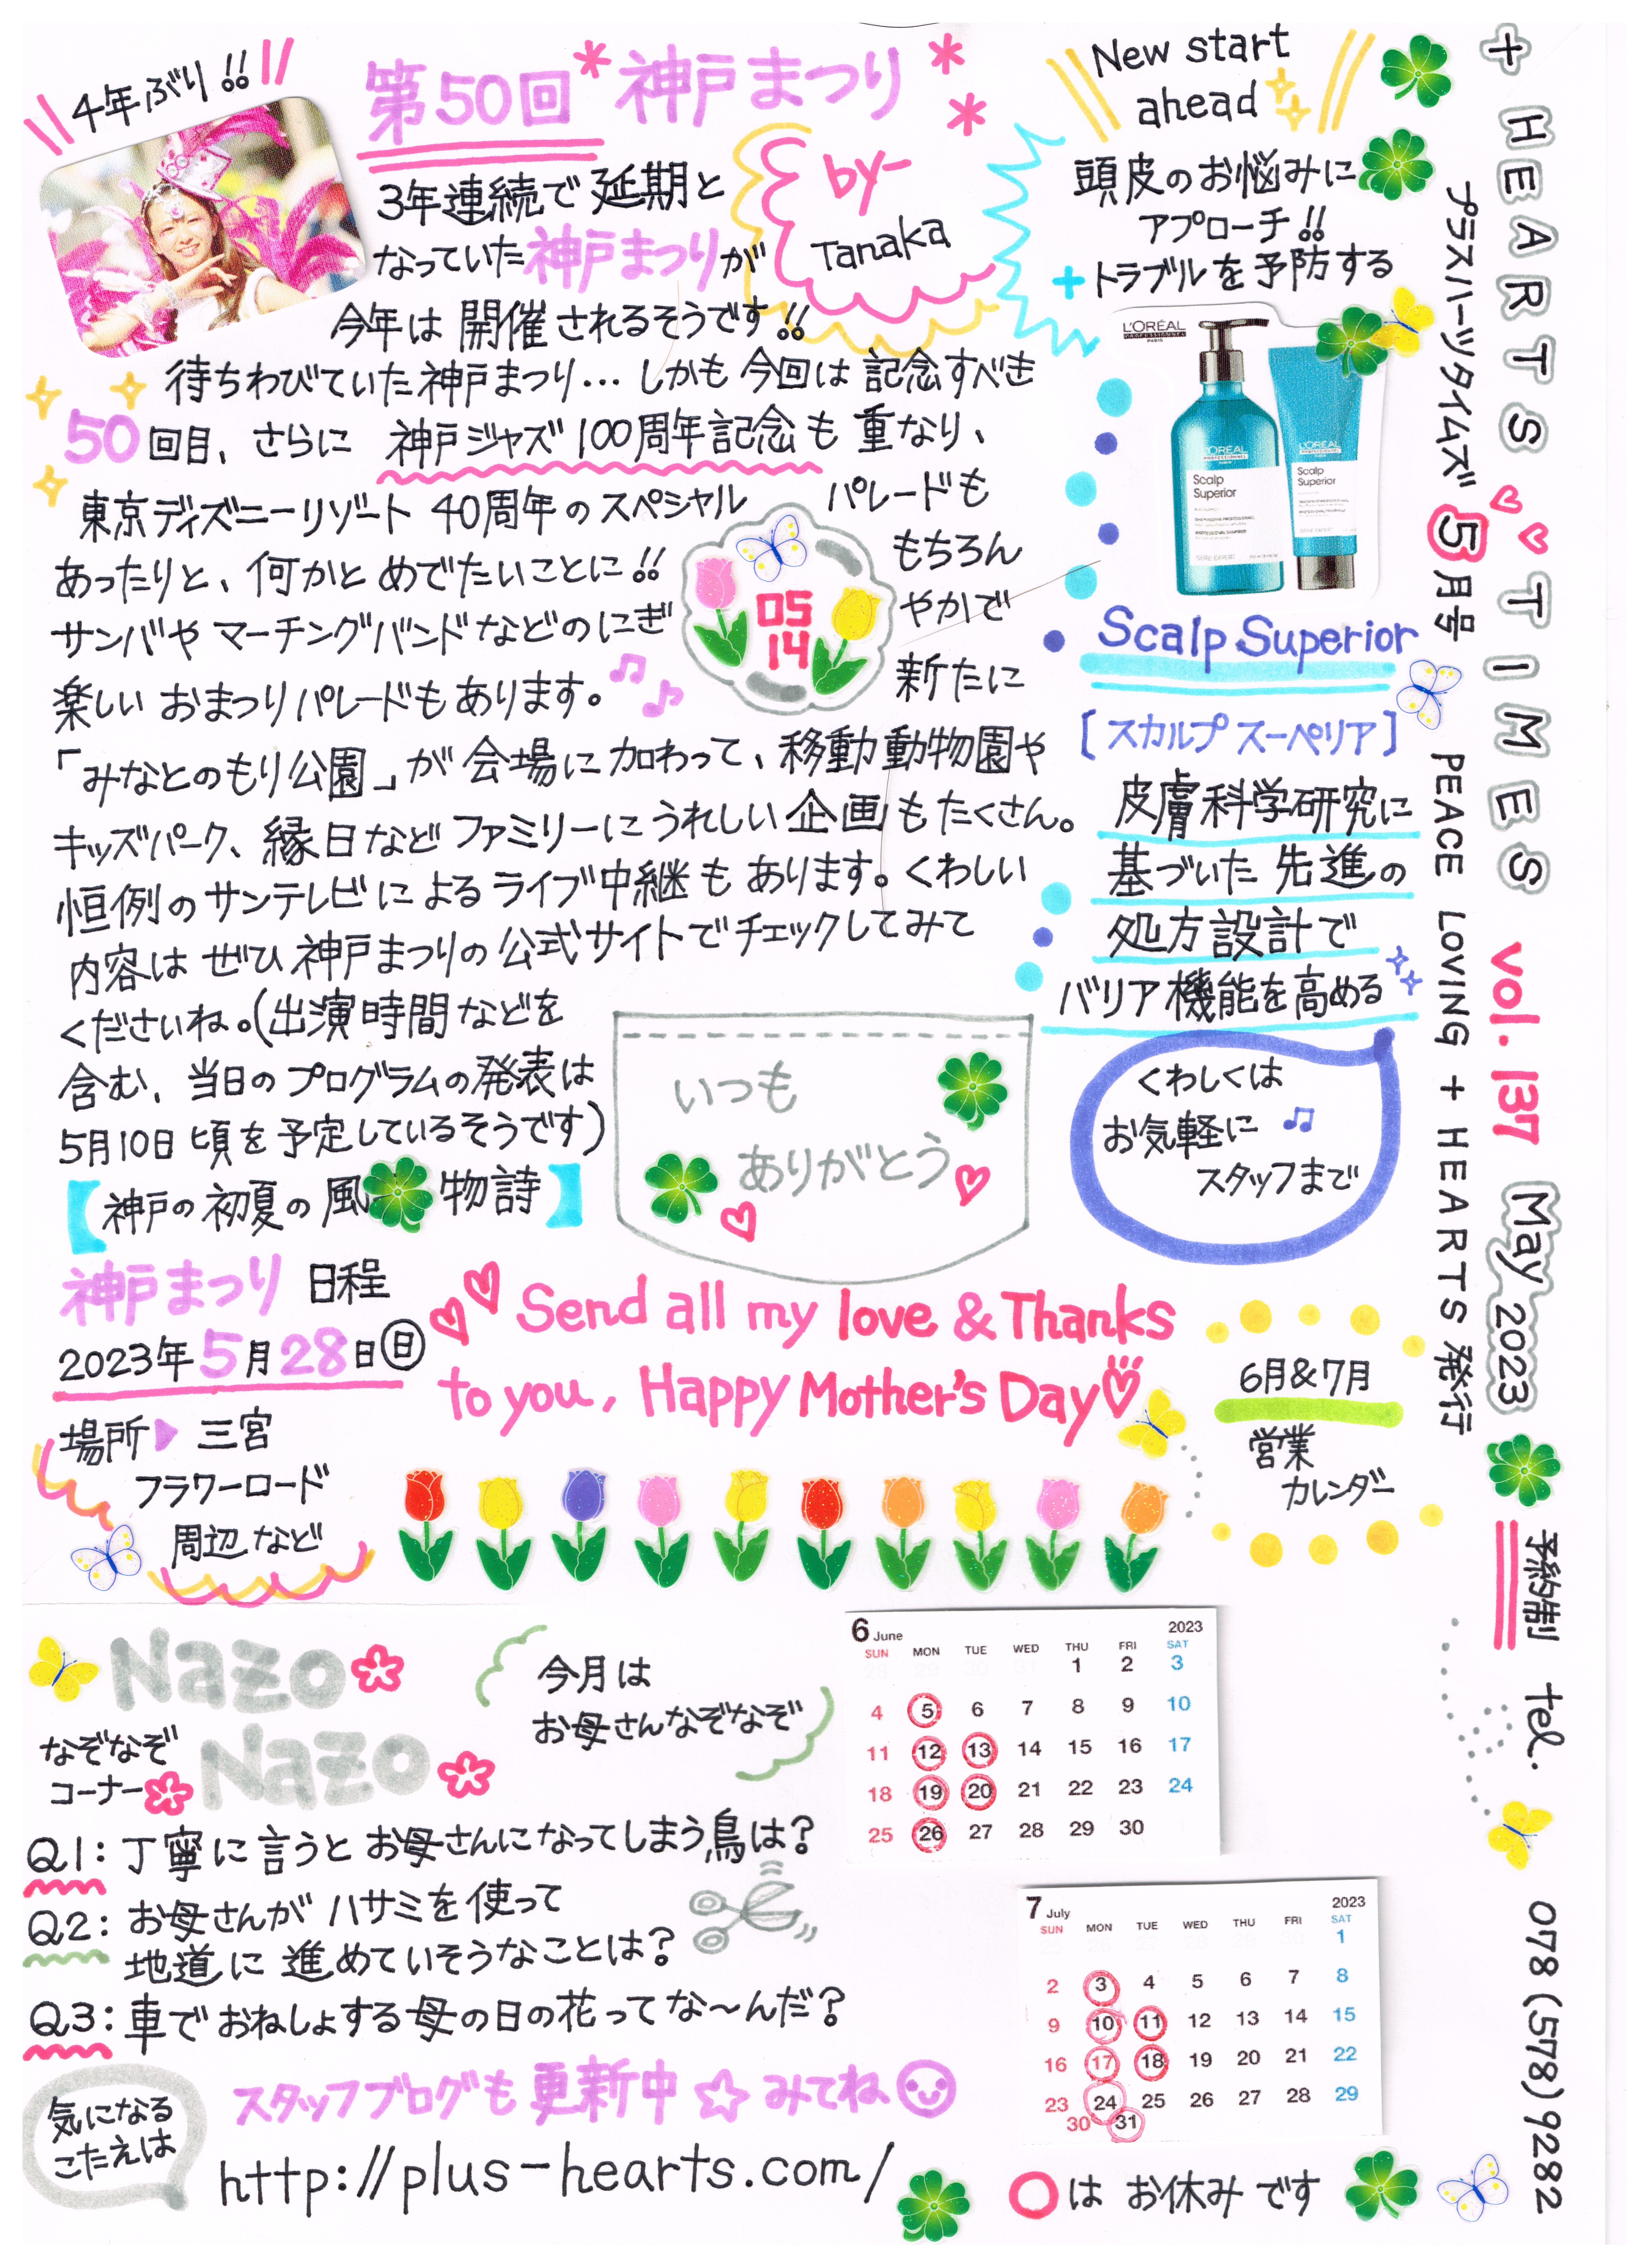 + HEARTS TIMES vol. 137 May 2023 予約制 tel. 078(578)9282
プラスハーツタイムズ 5月号 PEACE LOVING + HEARTS 発行
4年ぶり!!
第50回 神戸まつり
by-
Tanaka
3年連続で延期と
なっていた神戸まつりが
今年は開催されるそうです!!
待ちわびていた神戸まつり…しかも今回は記念すべき
50回目、さらに 神戸ジャズ100周年記念も重なり、
東京ディズニーリゾート 40周年のスペシャル パレードも
あったりと、何かとめでたいことに!! もちろん
サンバやマーチングバンドなどのにぎ やかで
楽しいおまつりパレードもあります。 新たに
「みなとのもり公園」が会場に加わって、移動動物園や
キッズパーク、縁日などファミリーにうれしい企画もたくさん。
恒例のサンテレビによるライブ中継もあります。くわしい
内容はぜひ神戸まつりの公式サイトでチェックしてみて
くださいね。(出演時間などを
含む、当日のプログラムの発表は
5月10日頃を予定しているそうです)
05
14
【神戸の初夏の風物詩】
神戸まつり 日程
2023年5月28日(日)
場所▶三宮
フラワーロード
周辺など
いつも
ありがとう
Send all my love & Thanks
to you, Happy Mother's Day
New start
ahead
頭皮のお悩みに
アプローチ!!
+トラブルを予防する
L'ORÉAL
PROFESSIONNEL
PARIS
L'ORÉAL
PROFESSIONNEL
Scalp
Superior
L'ORÉAL
PROFESSIONNEL
Scalp
Superior
Scalp Superior
[スカルプ スーペリア]
皮膚科学研究に
基づいた先進の
処方設計で
バリア機能を高める
くわしくは
お気軽に
スタッフまで
6月&7月
営業
カレンダー
Nazo
なぞなぞ Nazo
コーナー
今月は
お母さんなぞなぞ
Q1:丁寧に言うとお母さんになってしまう鳥は?
Q2:お母さんがハサミを使って
地道に進めていそうなことは?
Q3:車でおねしょする母の日の花ってな〜んだ?
気になる
こたえは
スタッフブログも更新中☆みてね
http://plus-hearts.com/
6 June 2023
SUN MON TUE WED THU FRI SAT
1 2 3
4 5 6 7 8 9 10
11 12 13 14 15 16 17
18 19 20 21 22 23 24
25 26 27 28 29 30
7 July 2023
SUN MON TUE WED THU FRI SAT
1
2 3 4 5 6 7 8
9 10 11 12 13 14 15
16 17 18 19 20 21 22
23 24 25 26 27 28 29
30 31
○は お休みです